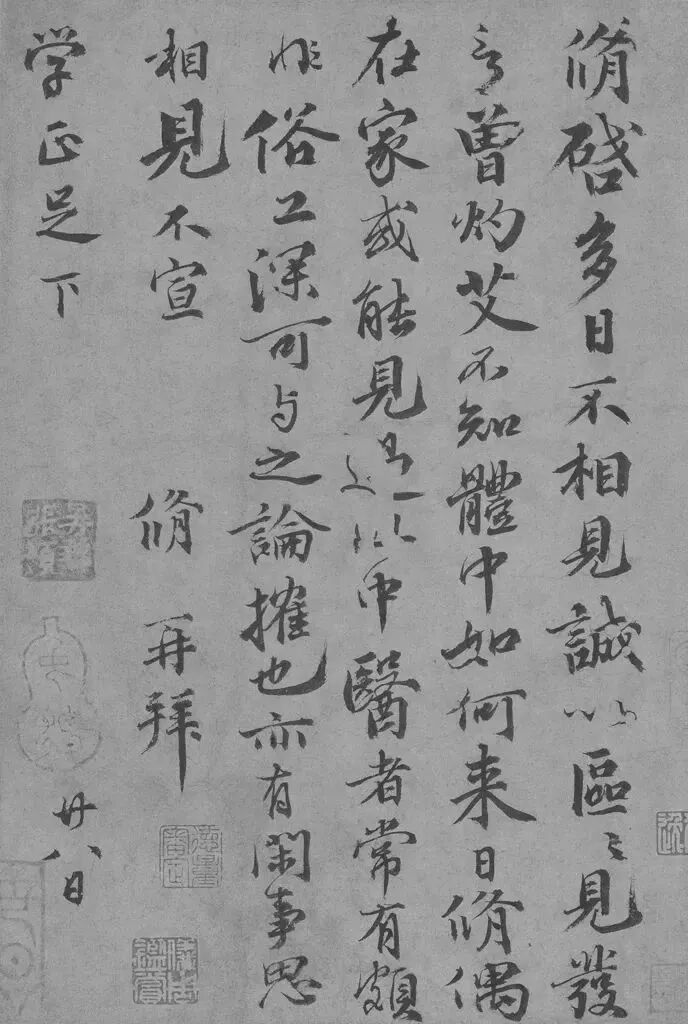 脩啓多日不相見誠以區〻見發
言曾灼艾不知體中如何来日脩偶
在家或能見過此中醫者常有頗
非俗工深可与之論擁也亦有閑事思
相見不宣
脩再拜
学正足下
廿八日